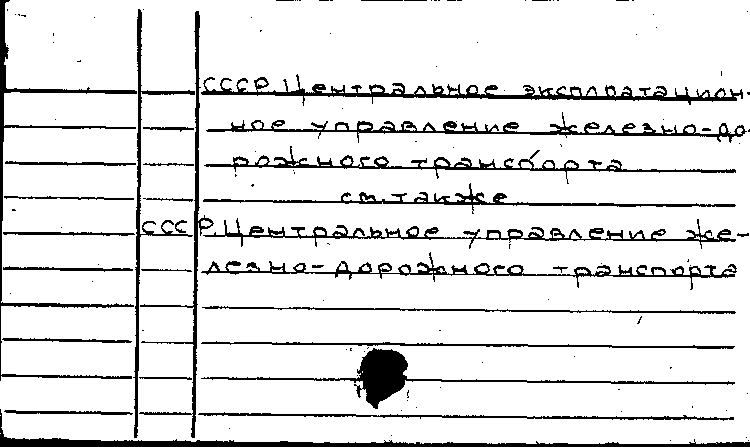 СССР. Центральное эксплоатацион-
ное управление железно-до-
рожного транспорта
см. также
СССР. Центральное управление же-
лезно-дорожного транспорта